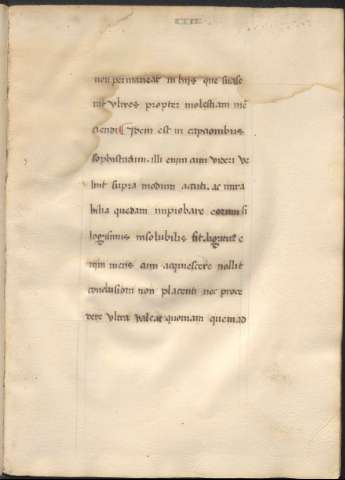 non permaneat in hijs que suase
rit Ulixes propter molestiam me
ciendi Idem est in capcionibus
sophistarum illi enim cum videri ve
lint supra modum acuti ac mira
bilia quedam improbare eorum si
logismus insolubilis fit ligatur e
nim mens cum acquiescere nollit
conclusioni non placenti nec proce
dere ultra valeat quoniam quemad